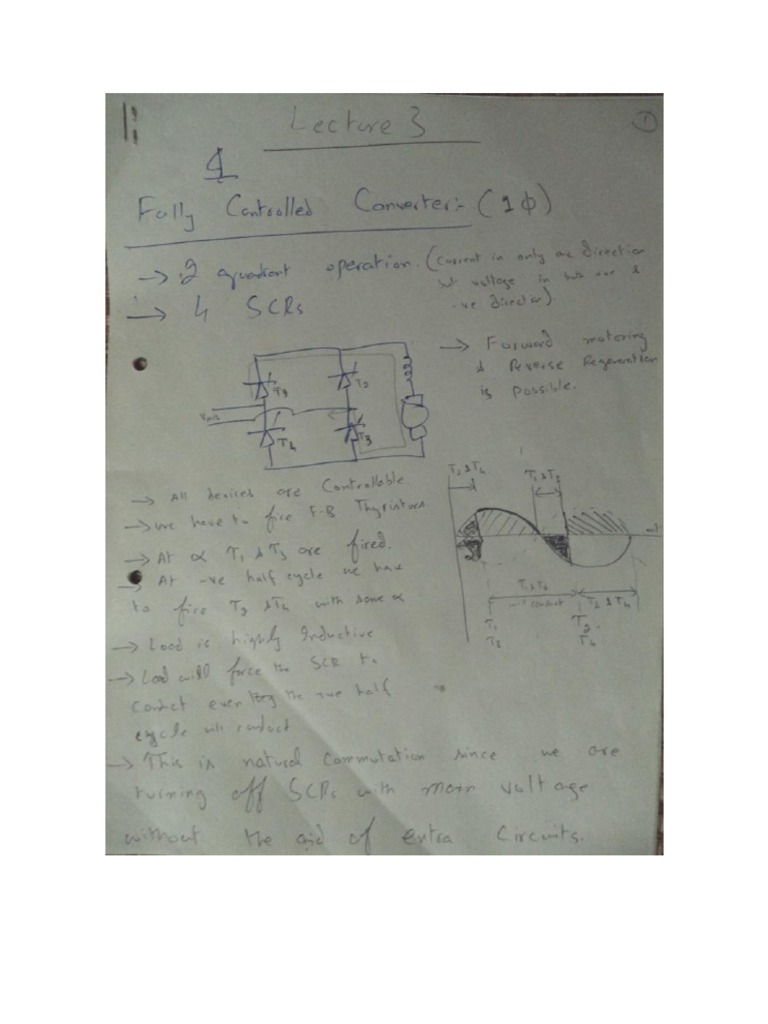 Lecture 3
1
4
Fully Controlled Converter:- (1ϕ)
→ 2 quadrant operation. (current in only one direction
but voltage in both +ve &
-ve direction)
→ 4 SCRs
→ Forward motoring
& Reverse Regeneration
is possible.
T1
T2
T4
T3
→ All devices are Controllable
→ we have to fire F-B Thyristors.
→ At α T1 & T3 are fired.
→ At -ve half cycle we have
to fire T2 & T4 with same α
→ Load is highly Inductive
→ Load will force the SCR to
conduct even the +ve half
cycle will conduct
T2 & T4
T1 & T3
T1 & T3
will conduct
T2 & T4
T1
T3
T2
T4
→ This is natural commutation since we are
turning off SCRs with main voltage
without the aid of extra circuits.